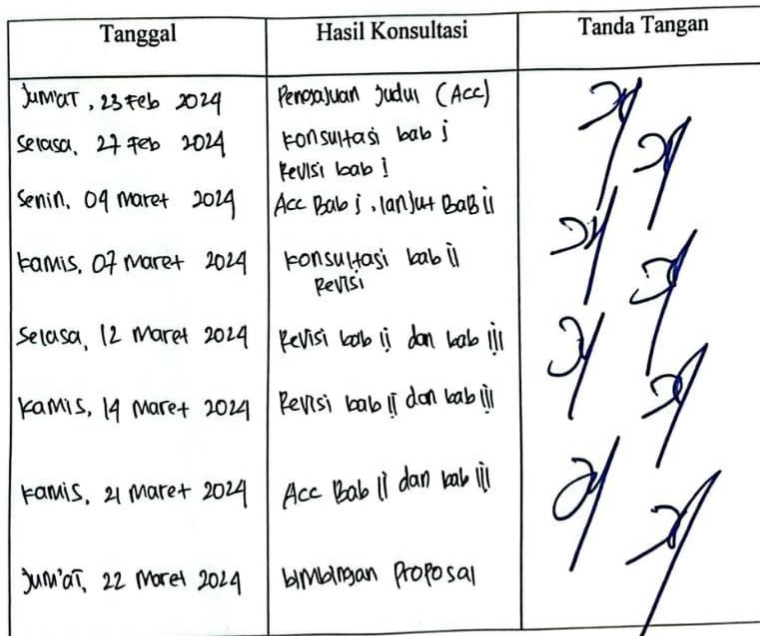 Tanggal Hasil Konsultasi Tanda Tangan
Jum'at, 23 Feb 2024 Pengajuan Judul (Acc)
Selasa, 27 Feb 2024 Konsultasi bab i
Revisi bab i
Senin, 04 Maret 2024 Acc Bab i, lanjut BaB ii
Kamis, 07 Maret 2024 Konsultasi bab ii
Revisi
Selasa, 12 Maret 2024 Revisi bab ii dan bab iii
Kamis, 14 Maret 2024 Revisi bab ii dan bab iii
Kamis, 21 Maret 2024 Acc Bab ii dan bab iii
Jum'at, 22 Maret 2024 bimbingan Proposal